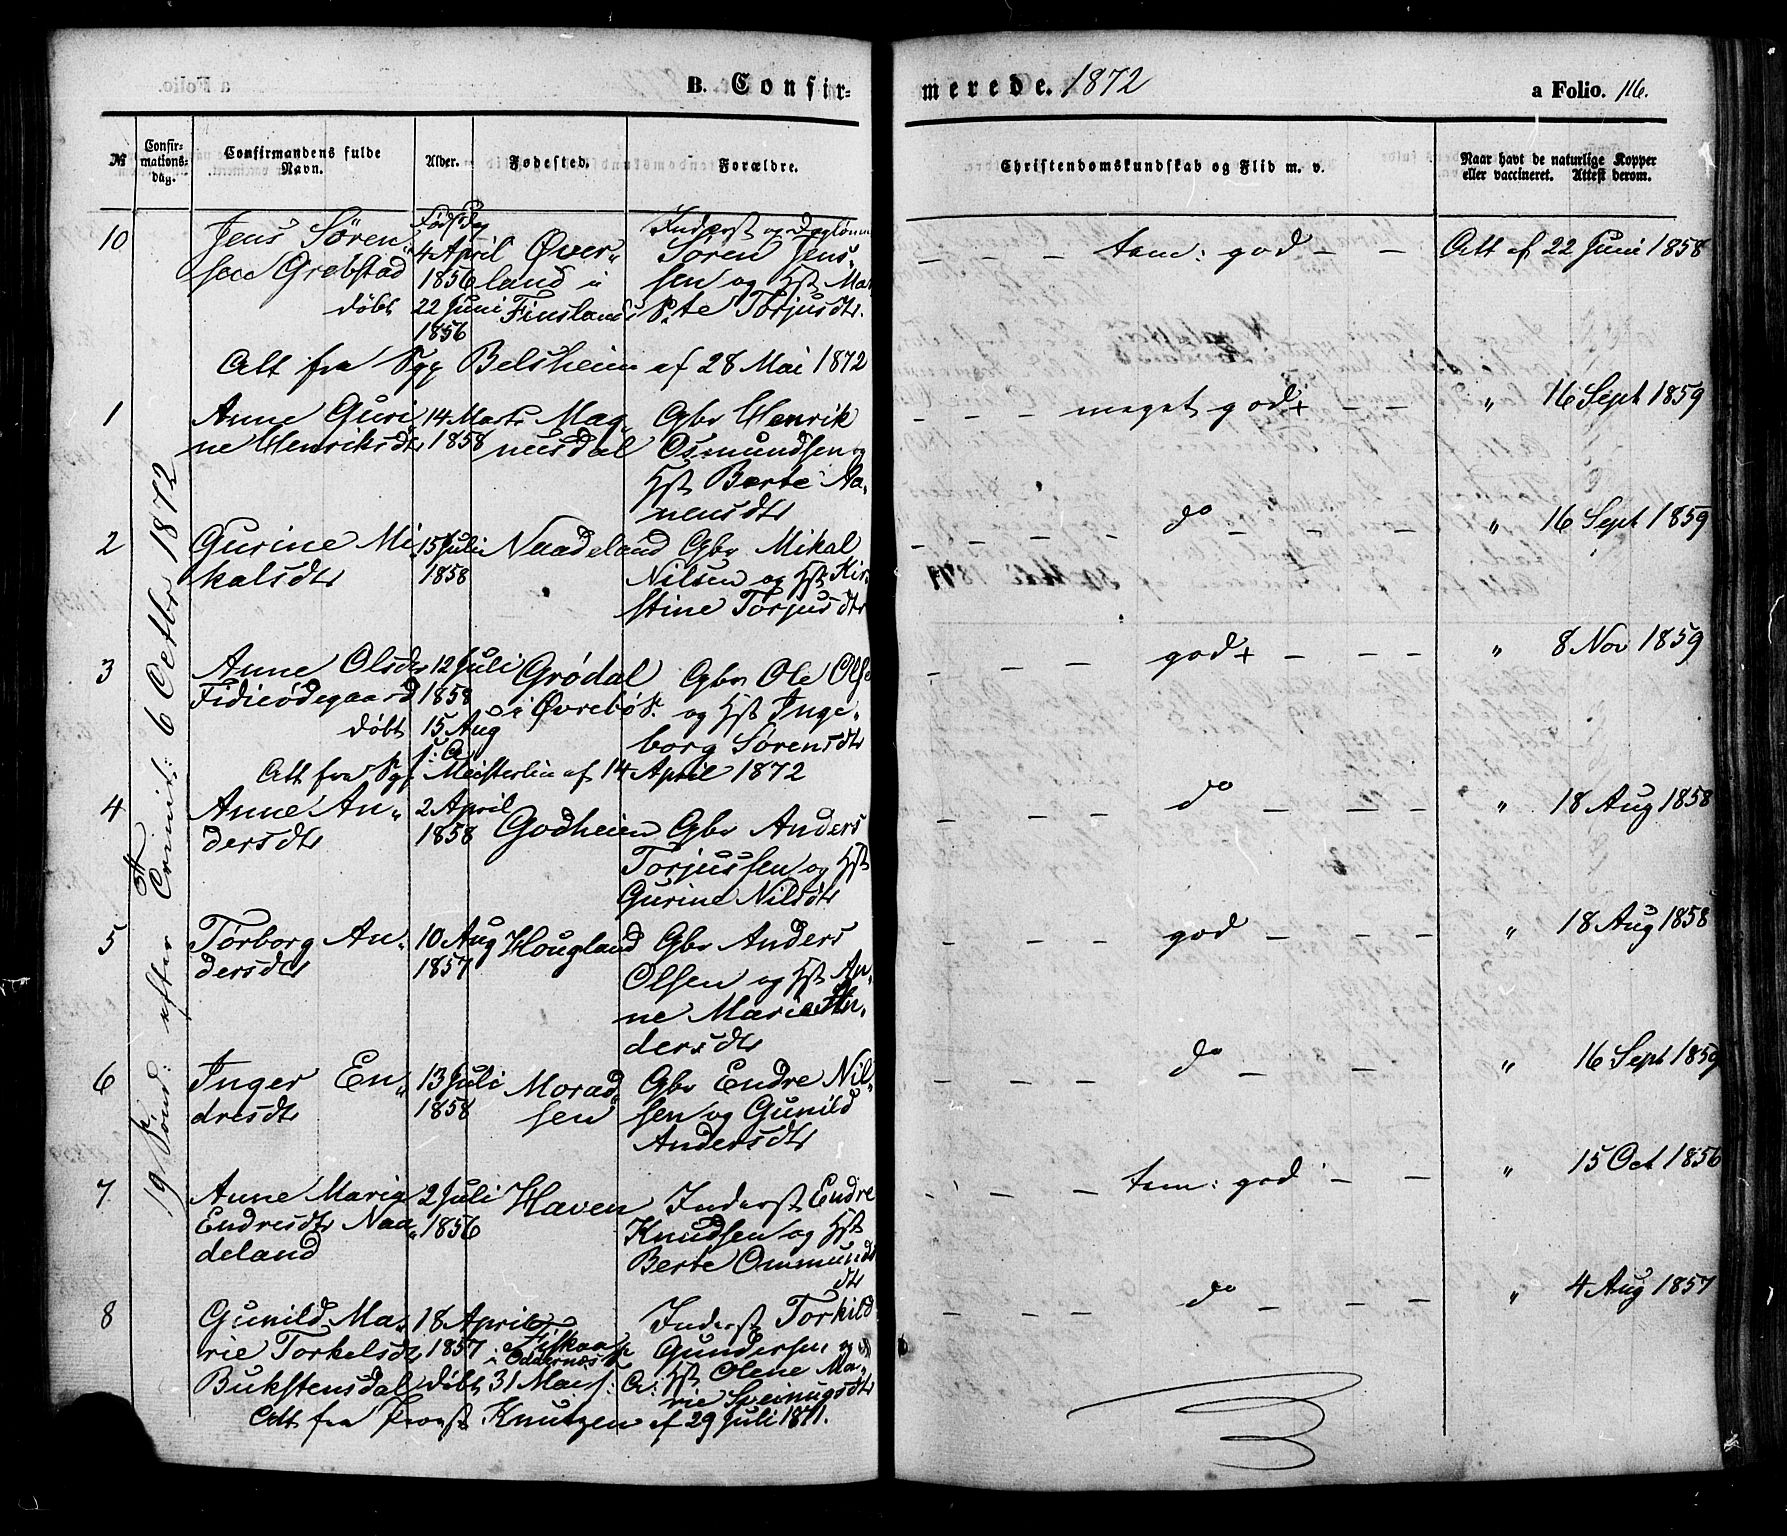 B. Confir-
merede. 1872
a Folio. 116.
№
Confir-
mations-
dag.
Confirmandens fulde
Navn.
Alder.
Fødested.
Forældre.
Christendomskundskab og Flid m. v.
Naar havt de naturlige Kopper
eller vaccineret. Attest derom.
19 Sønd: efter Trinit: 6 Octbr 1872
10 Jens Sören-
sen Grebstad
døbt
Föds Dag
4 April
1856
22 Juni
1856
Øver-
land i
Finsland
Inderst og
Sören Jens-
sen og Hst Mar-
te Torjusdtr.
Att fra Sgp Belsheim af 28 Mai 1872
– – – tem: god – – Att af 22 Juni 1858
1 Anne Guri-
ne Henriksdtr
14 Marts
1858
Mag-
nusdal
Gbr Henrik
Osmundsen og
Hst Berte Aa-
nensdtr
– – – meget god+ – – " 16 Sept 1859
2 Gurine Mi-
kalsdtr
15 Juli
1858
Naadeland
Gbr Mikal
Nilsen og Hst Kir-
stine Torjusdtr
– – – do – – – " 16 Sept 1859
3 Anne Olsdtr
Fidieødegaard
døbt
12 Juli
1858
15 Aug
s: A
Grödal
i Øvrebö
Gbr Ole Ols
og Hst Inge-
borg Sörensdtr
Att fra Sgp Meisterlin af 14 April 1872
– – – god+ – – – " 8 Nov 1859
4 Anne An-
dersdtr
2 April
1858
Godheim
Gbr Anders
Torjussen og Hst
Gurine Nilsdtr
– – – do – – – " 18 Aug 1858
5 Torborg An-
dersdtr
10 Aug
1857
Hougland
Gbr Anders
Olsen og Hst An-
ne Marie An-
dersdtr
– – – god – – – " 18 Aug 1858
6 Inger En-
dresdtr
13 Juli
1858
Morad-
sen
Gbr Endre Nil-
sen og Gunild
Andersdtr
– – – do – – – " 16 Sept 1859
7 Anne Maria
Endresdtr Naa-
deland
2 Juli
1856
Haven
Inderst Endre
Knudsen og Hst
Berte Ommunds
dtr
– – – tem: god – – – " 15 Oct 1856
8 Gunild Ma-
rie Torkelsdtr
Bukstensdal
18 April
1857
døbt 31 Mai s: A:
Fiskaa
i Oddernes
Inderst Torkild
Gundersen og
Hst Olene Ma-
rie Sveinugsdtr
Att fra Provst Knutzen af 29 Juli 1871.
– – – do – – – " 4 Aug 1857